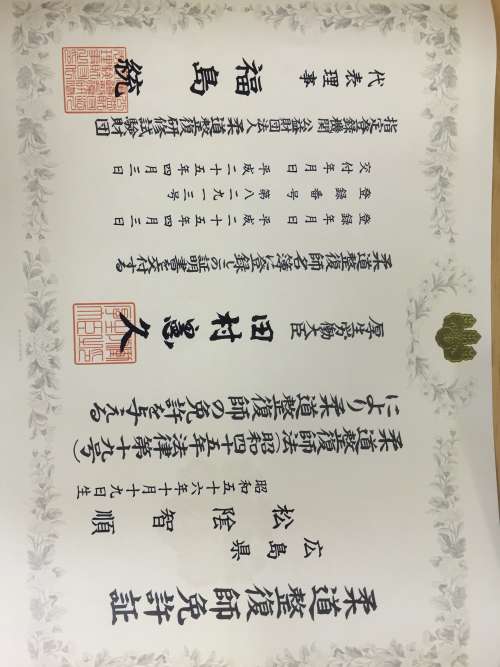 柔道整復師免許証
広島県
松陰智順
昭和五十六年十月十九日生
柔道整復師法(昭和四十五年法律第十九号)
により柔道整復師の免許を与える
厚生労働大臣 田村憲久
柔道整復師名簿に登録しこの証明書を交付する
登録年月日 平成二十五年四月三日
登録番号 第八二九一三号
交付年月日 平成二十五年四月三日
指定登録機関 公益財団法人柔道整復研修試験財団
代表理事 福島統